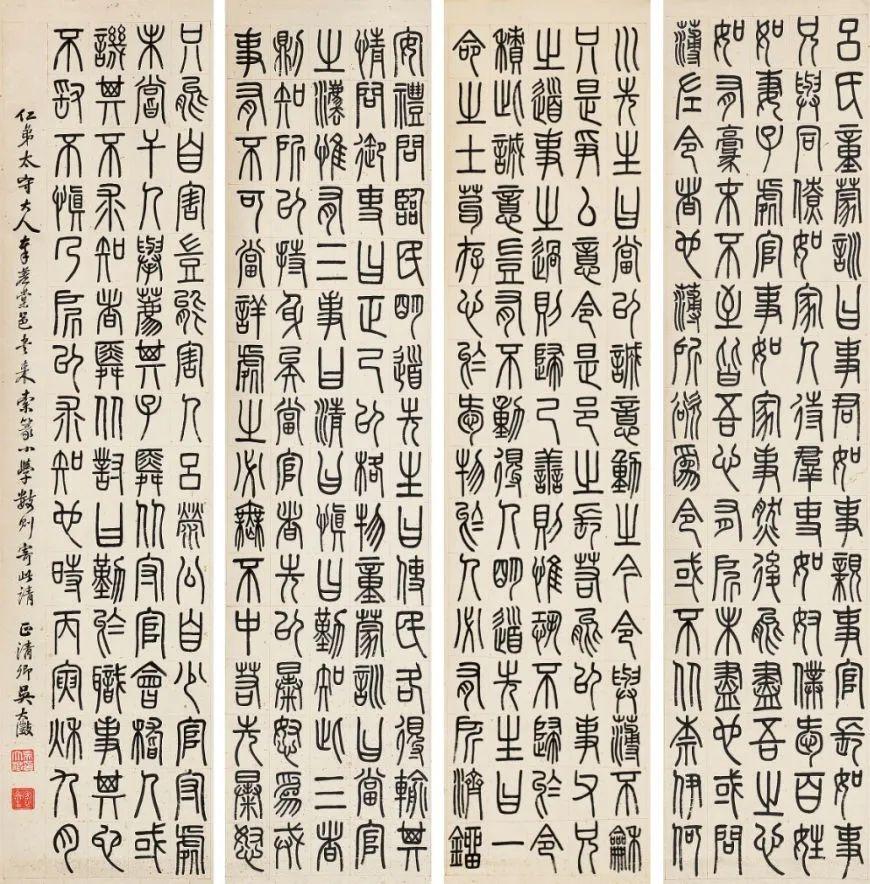 呂氏童蒙訓曰事君如事親事官長如事
兄與同僚如家人待羣吏如奴僕愛百姓
如妻子處官事如家事然後能盡吾之心
如有毫末不至皆吾心有所未盡也或問
簿佐令者也簿所欲為令或不從奈伊何
川先生曰當以誠意動之今令與簿不龢
只是爭公意令是邑之長若能以事父兄
之道事之過則歸己善則惟恐不歸於令
積此誠意豈有不動得人明道先生曰一
命之士苟存心於愛物於人必有所濟鎦
安禮問臨民明道先生曰使民各得輸其
情問御吏曰正己以格物童蒙訓曰當官
之灋惟有三事曰清曰慎曰勤知此三者
則知所以持身矣當官者先以暴怒為戒
事有不可當詳處之必無不中若先暴怒
只能自害豈能害人呂滎公自少官守處
未嘗干人舉薦其子舜從守官會稽人或
譏其不求知者舜從對曰勤於職事其它
不敢不慎乃所以求知也時丙寅秋九月
仁弟太守大人堂邑來索篆小學數則寄此請 正清卿吳大澂